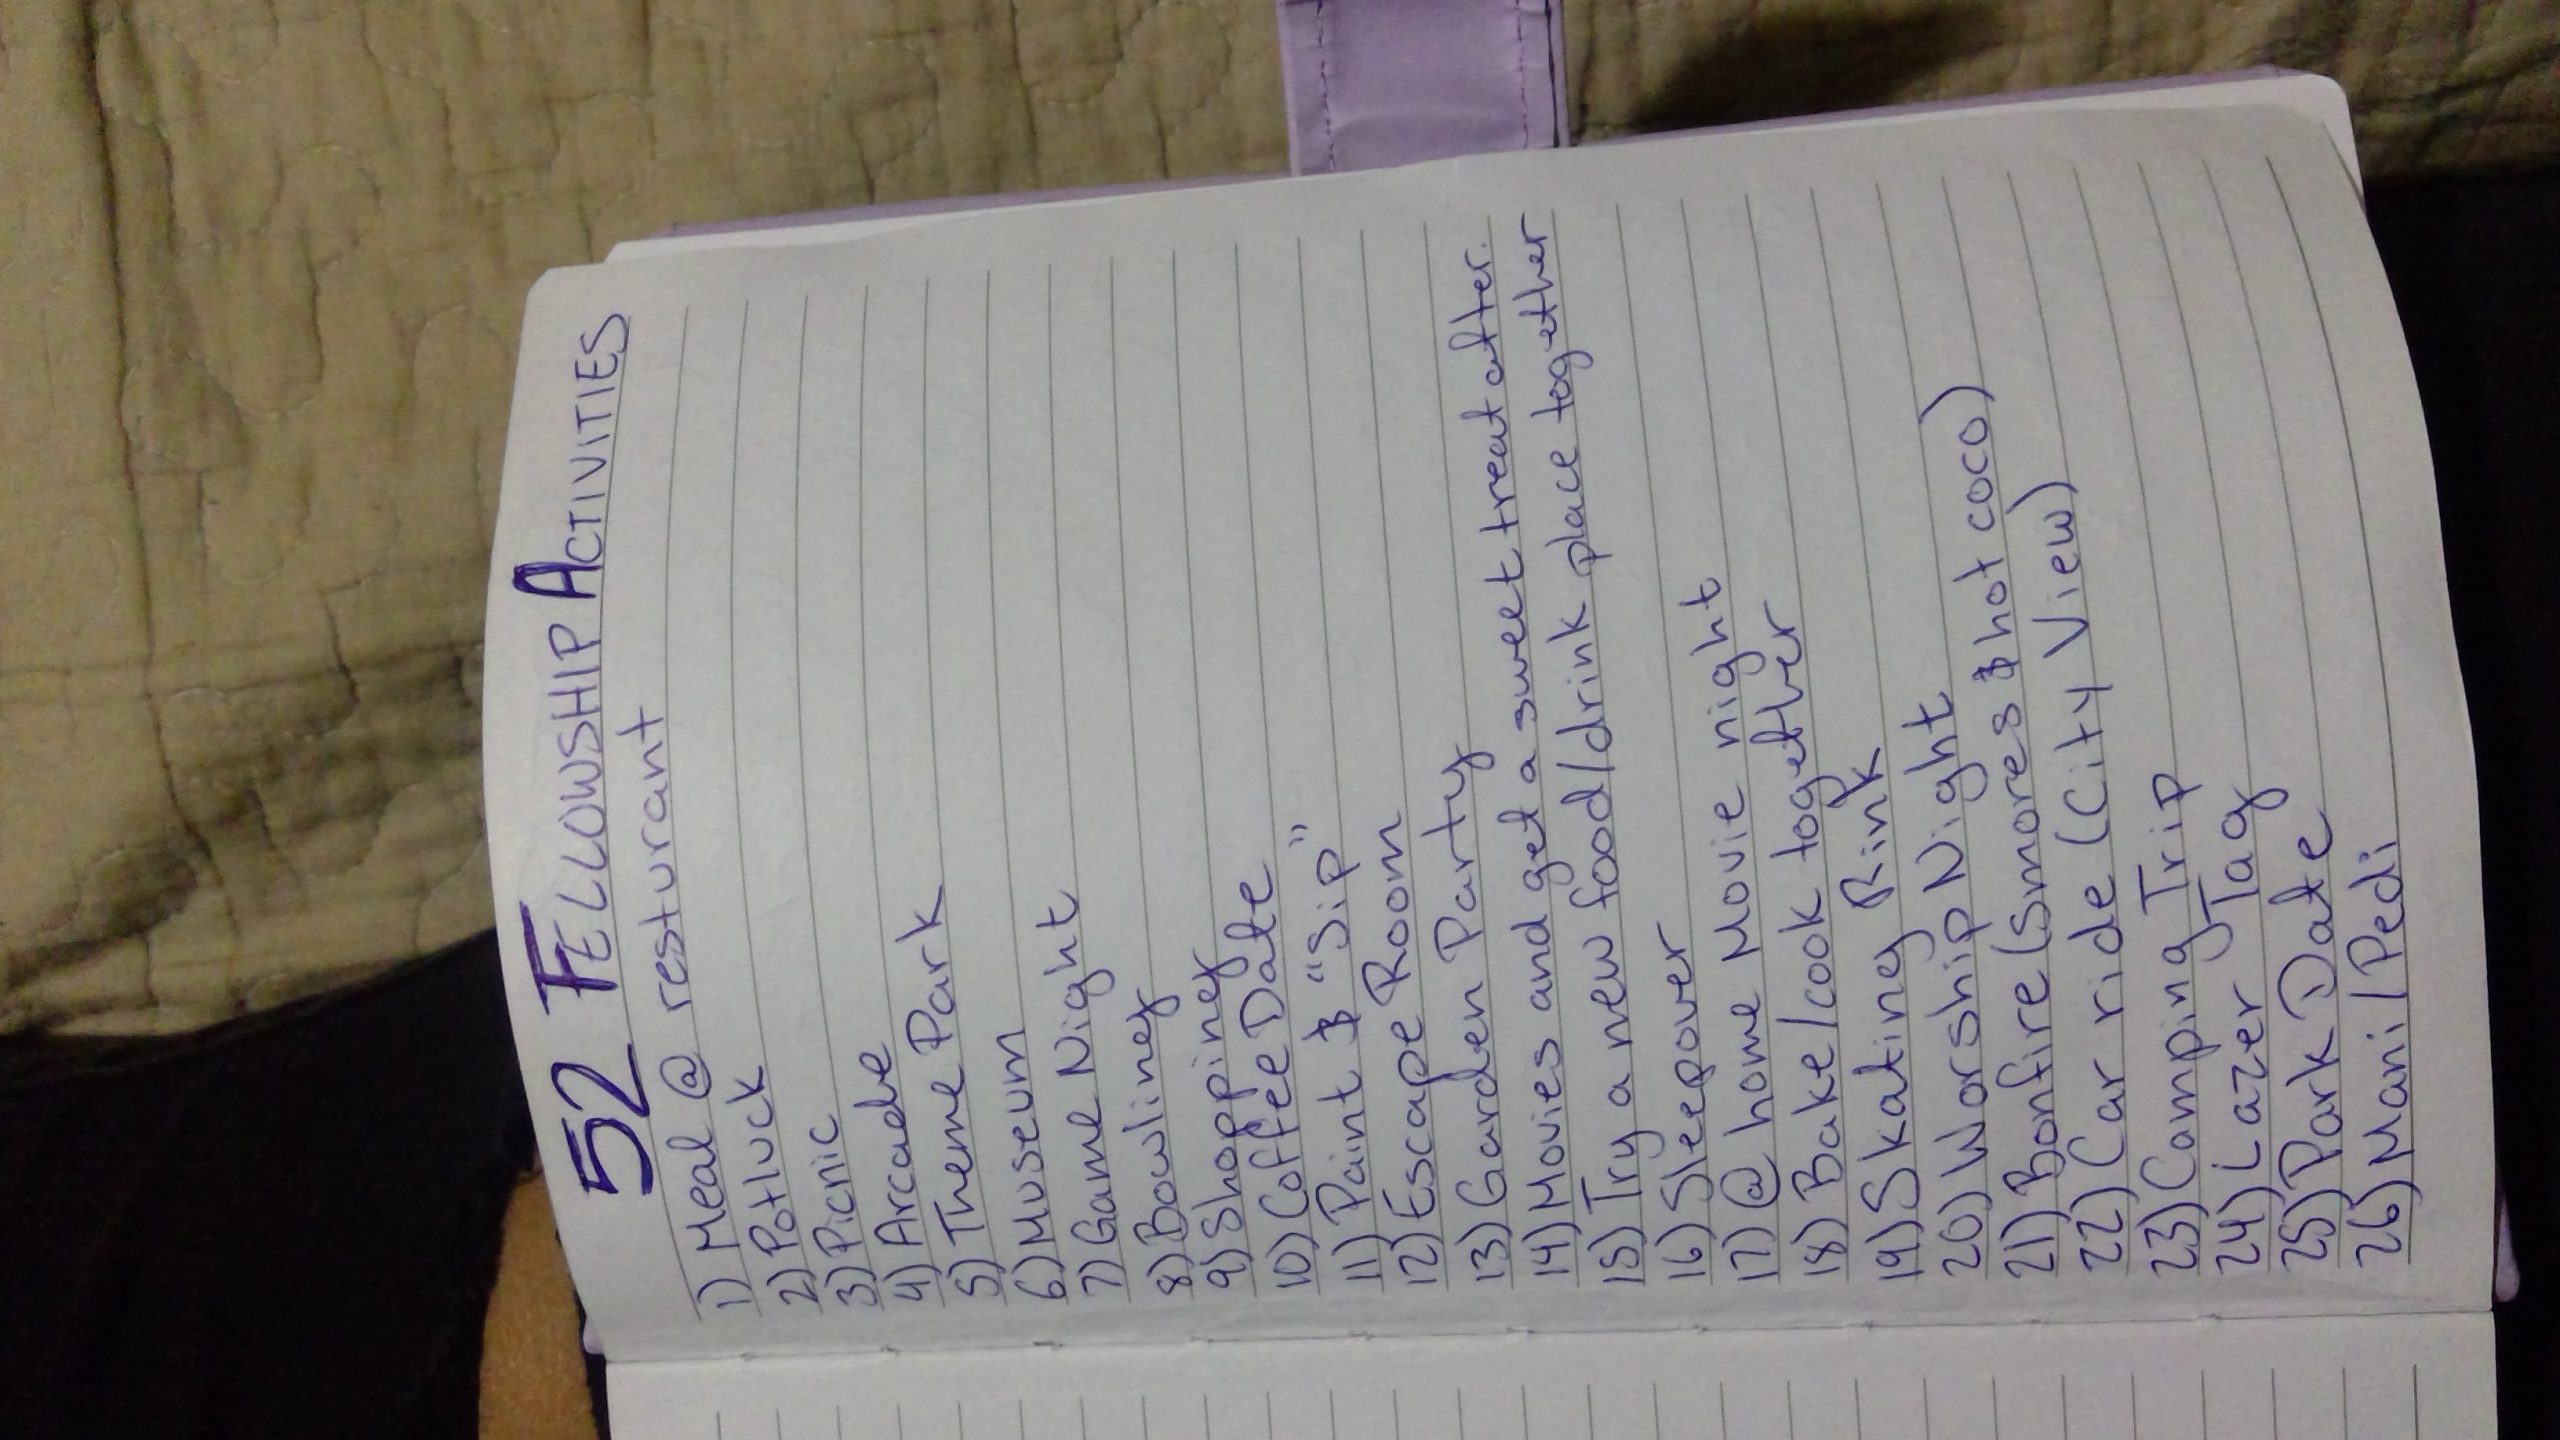 52 FELLOWSHIP ACTIVITIES
1) Meal @ resturant
2) Potluck
3) Picnic
4) Arcade
5) Theme Park
6) Museum
7) Game Night
8) Bowling
9) Shopping
10) Coffee Date
11) Paint & "Sip"
12) Escape Room
13) Garden Party
14) Movies and get a sweet treat after.
15) Try a new food/drink place together
16) Sleepover
17) @ home Movie night
18) Bake/cook together
19) Skating Rink
20) Worship Night
21) Bonfire (Smores & hot coco)
22) Car ride (City View)
23) Camping Trip
24) Lazer Tag
25) Park Date
26) Mani/Pedi